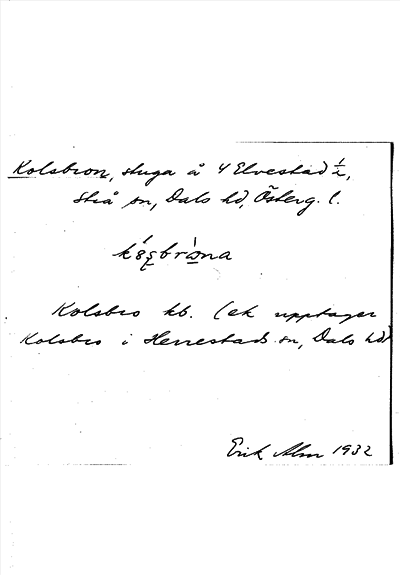 Kolsbron, stuga å 4 Elvestad ½,
Strå sn, Dals hd, Österg. l.
Kolsbro kb. (ek upptager
Kolsbro i Herrestads sn, Dals hd)
Erik Alm 1932